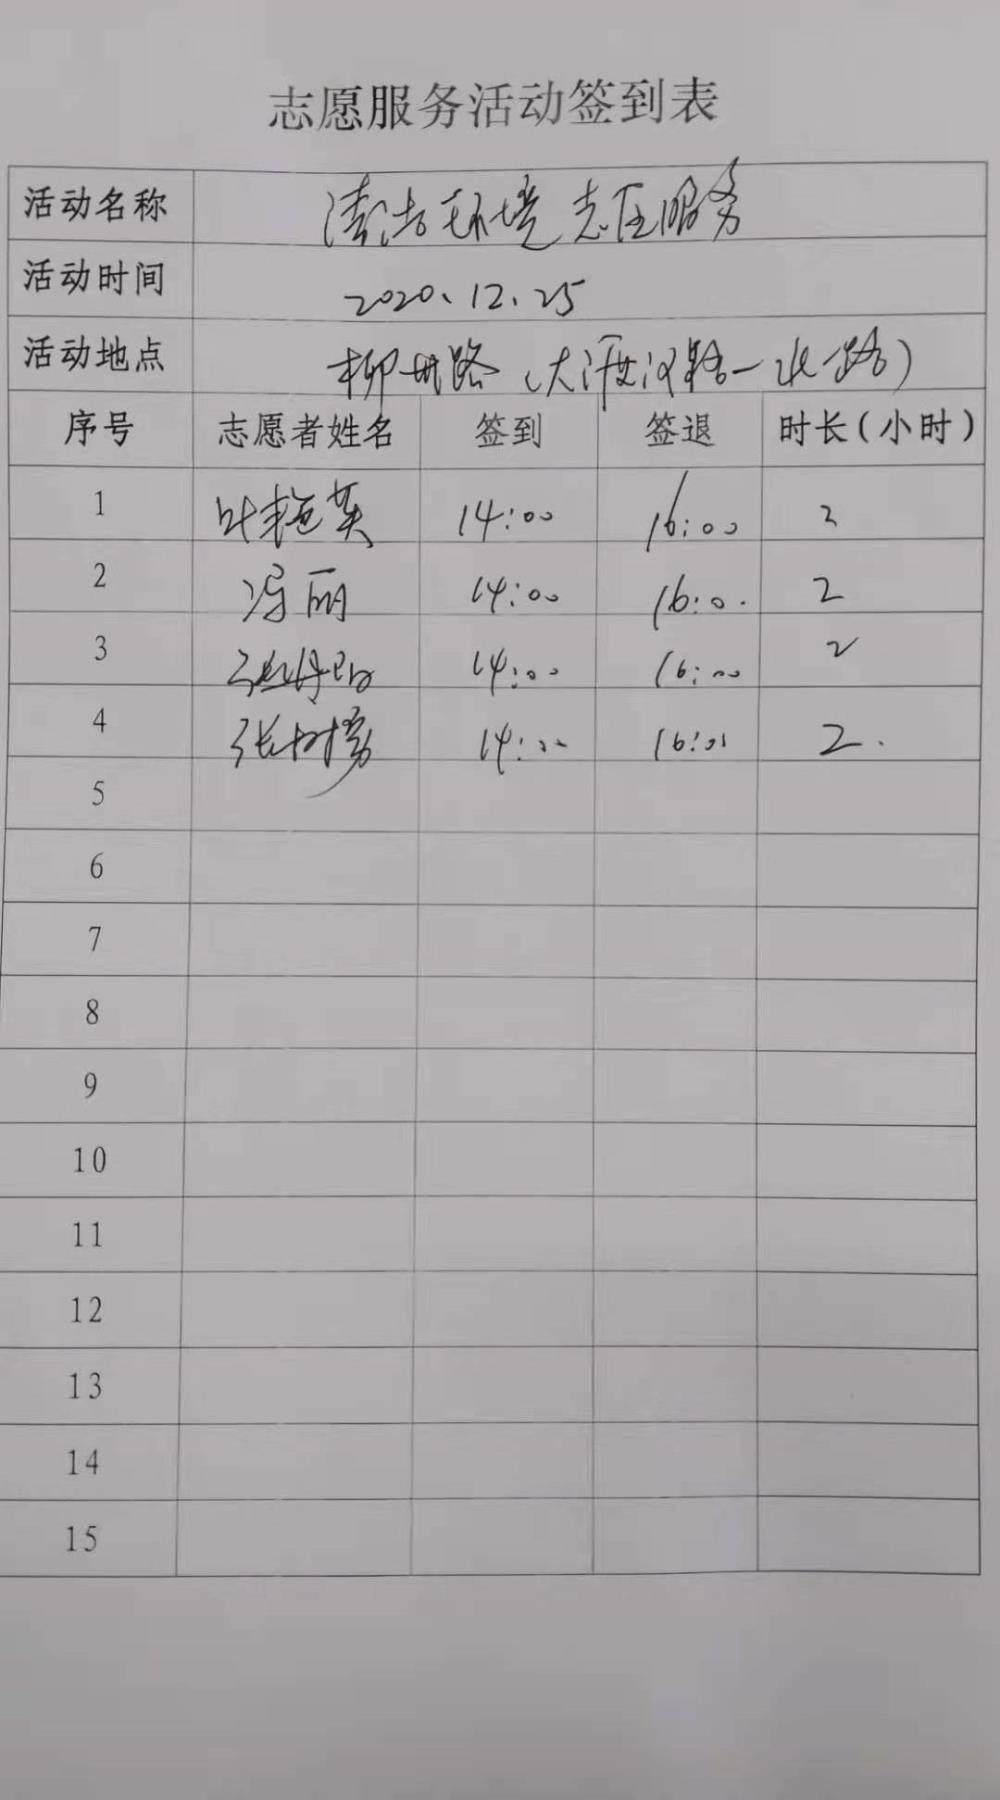 志愿服务活动签到表
活动名称 清洁环境志愿服务
活动时间 2020.12.25
活动地点 柳州路(大渡河路一北路)
序号 志愿者姓名 签到 签退 时长(小时)
1 叶艳英 14:00 16:00 2
2 冯丽 14:00 16:0. 2
3 14:00 16:00 2
4 张树 14:00 16:01 2.
5
6
7
8
9
10
11
12
13
14
15